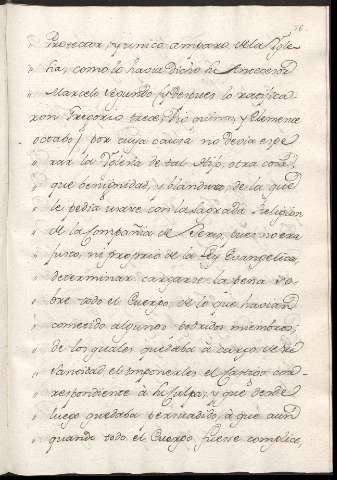 76.
" Protector, y unico amparo de la Ygle-
" sia, como lo havia dicho su Antecesor
" Marcelo Segundo, y despues lo ratifica-
ron Gregorio trece, Pio quinto, y Clemente
" octavo) por cuya causa no devia espe-
" rar la Yglesia de tal Hijo, otra cosa,
" que benignidad, y blandura, de la que
" le pedia usare con la Sagrada Religion
" de la Compañia de Jesus, pues no era
" justo, ni proprio de la Ley Evangelica,
" determinar cargarse la pena so-
" bre todo el Cuerpo, de lo que havian
" cometido algunos podridos miembros,
" de los quales quedaba à cargo de su
" Santidad el imponerles el castigo cor-
" respondiente à su culpa; y que desde
" luego quedaba persuadido, à que aun
" quando todo el Cuerpo, fuese complice,